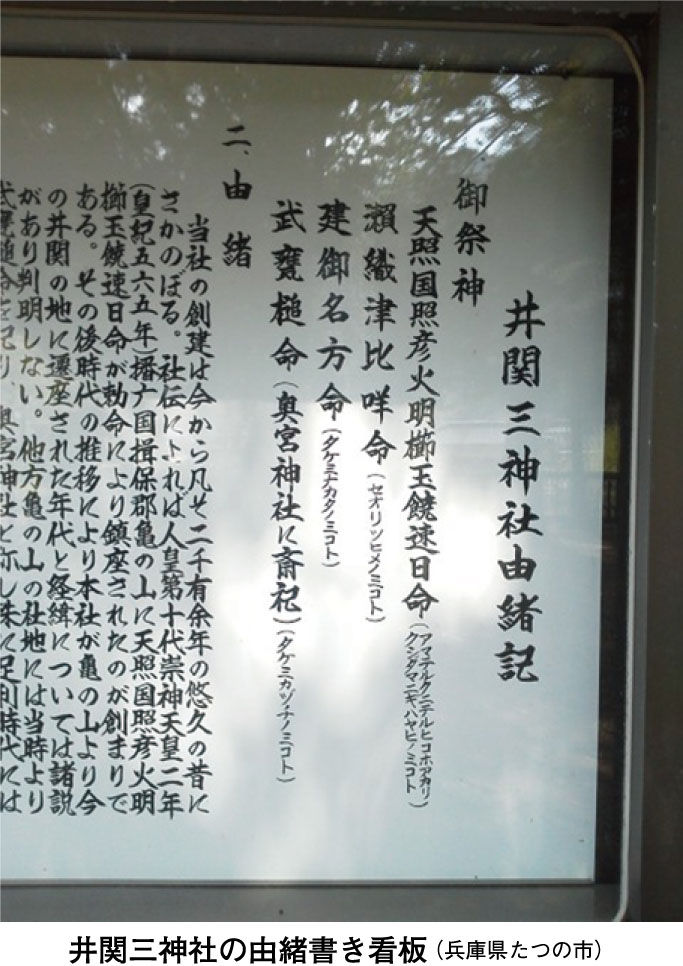 井関三神社由緒記
御祭神
天照国照彦火明櫛玉饒速日命(アマテルクニテルヒコホアカリノ
クシダマニギハヤヒノミコト)
瀬織津比咩命(セオリツヒメノミコト)
建御名方命(タケミナカタノミコト)
武甕槌命(奥宮神社に斎祀)(タケミカヅチノミコト)
二、由緒
当社の創建は今から凡そ二千有余年の悠久の昔に
さかのぼる。社伝によれば人皇第十代崇神天皇二年
(皇紀五六五年)播广国揖保郡亀の山に天照国照彦火明
櫛玉饒速日命が勅命により鎮座されたのが創まりで
ある。その後時代の推移により本社が亀の山より今
の井関の地に遷座された年代と経緯については諸説
があり判明しない。他方亀の山の社地には当時より
武甕槌命を祀り、奥宮神社と称し殊に足利時代には
井関三神社の由緒書き看板(兵庫県たつの市)